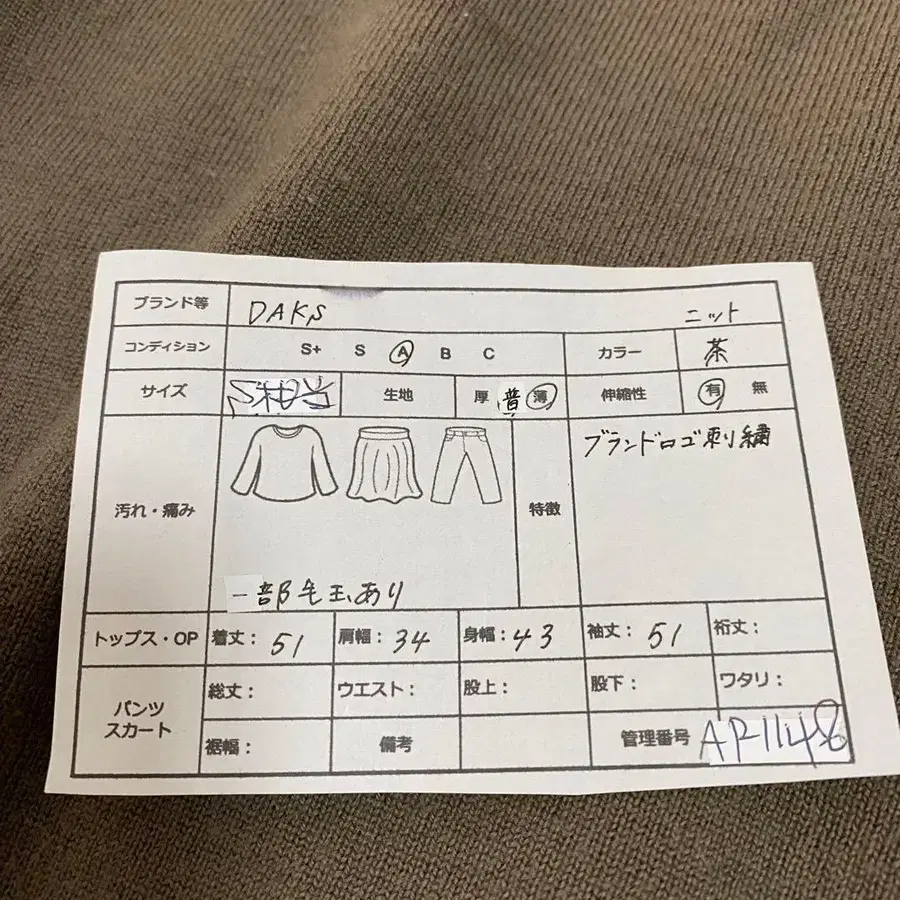 ブランド等 DAKS ニット
コンディション S+ S A B C カラー 茶
サイズ S相当 生地 厚 普 薄 伸縮性 有 無
汚れ・痛み 特徴 ブランドロゴ刺繍
一部毛玉あり
トップス・OP 着丈: 51 肩幅: 34 身幅: 43 袖丈: 51 裄丈:
パンツ スカート 総丈: ウエスト: 股上: 股下: ワタリ:
裾幅: 備考 管理番号